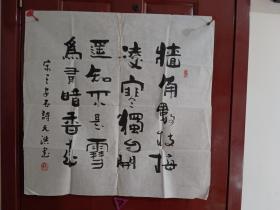 牆角數枝梅
凌寒獨自開
遥知不是雪
為有暗香来
宋王安石詩